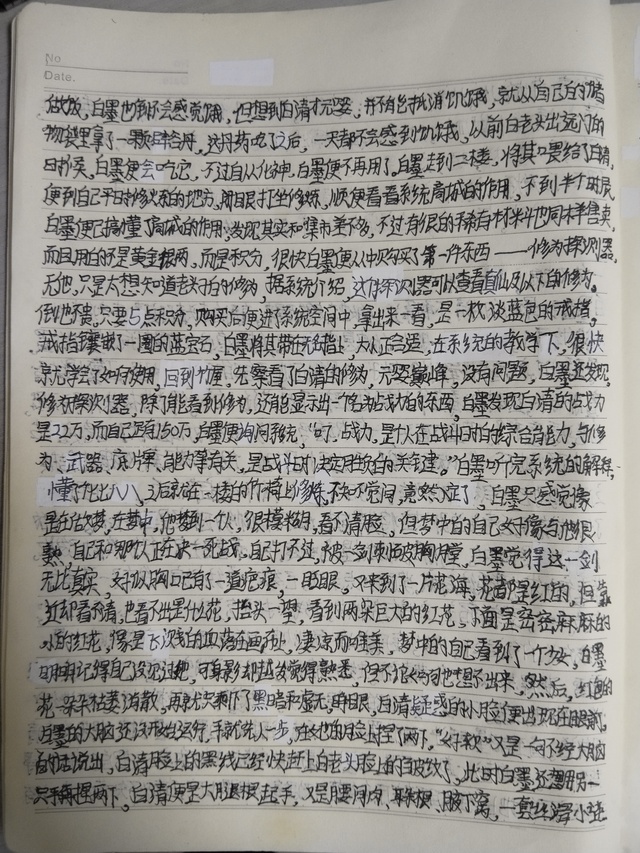 No
Date.
做饭,白墨也倒不会感觉饿,但想到白清才元婴,并不能抵消饥饿,就从自己白的储
物袋里拿了一颗辟谷丹,这丹药吃了之后,一天都不会感到饥饿,从前白老头出远门的
时候,白墨便会吃它,不过自从化神,白墨便不再用了,白墨走到二楼,将其喂给了白清,
便到自己平时修炼的地方,闭眼打坐修炼,顺便看看系统商城的作用,不到半个时辰
白墨便已搞懂了商城的作用,发现其实和集市差不多,不过有很多稀有材料也同样售卖,
而且用的不是黄金银两,而是积分,很快白墨便从中购买了第一件东西——修为探测器,
无他,只是太想知道老头子的修为,据系统介绍,这件探测器可以查看真仙及以下的修为,
倒也不贵,只要5点积分,购买后便进了系统空间中,拿出来一看,是一枚淡蓝色的戒指,
戒指镶嵌了一圈的蓝宝石,白墨将其带在无名指上,大小正合适,在系统的教学下,很快
就学会了如何使用,回到竹屋,先察看了白清的修为,元婴巅峰,没有问题,白墨还发现,
修为探测器,除了能看到修为,还能显示出一个名为战力的东西,白墨发现白清的战力
是22万,而自己足有150万,白墨便询问系统,“叮,战力,是个人在战斗时的综合能力,与修
为、武器、底牌、能力等有关,是战斗时决定胜负的关键。”白墨听完系统的解释,
懂了七七八八,之后就在一楼的竹椅上修炼,不知不觉间,竟然入定了,白墨只感觉像
是在做梦,在梦中,他梦到一个人,很模糊,看不清脸,但梦中的自己好像与他很
熟,自己和那个人正在决一死战,自己打不过,被一剑刺破胸膛,白墨觉得这一剑
无比真实,好似胸口已有一道疤痕,一眨眼,又来到了一片花海,花都是红的,但靠
近却看不清,也看不出是什么花,抬头一望,看到两朵巨大的红花,下面是密密麻麻的
小的红花,像是飞溅的血落在画布上,凄凉而唯美,梦中的自己看到了一个女,白墨
明明记得自己没见过她,可身影却越发觉得熟悉,但不管如何也想不出来,然后,红色的
花一朵朵枯萎消散,再就只剩下了黑暗和虚无,睁眼,白清疑惑的小脸便出现在眼前,
白墨的大脑还没开始运行,手就先人一步,在她的脸上捏了两下,“好软”又是一句不经大脑
的话说出,白清脸上的黑线已经快赶上白老头脸上的皱纹了,此时白墨还想用另一
只手再捏两下,白清便是大腿掐起手,又是腰间肉、耳朵根、腋下窝,一套丝滑小连